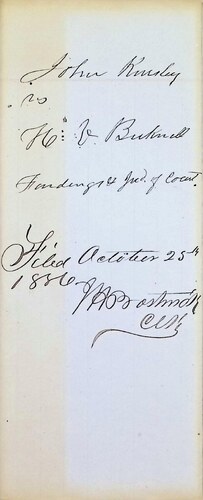 John Kinsley
vs
Wm V Bucknell
Findings & Jud. of Court.
Filed October 25th
1886
Clk